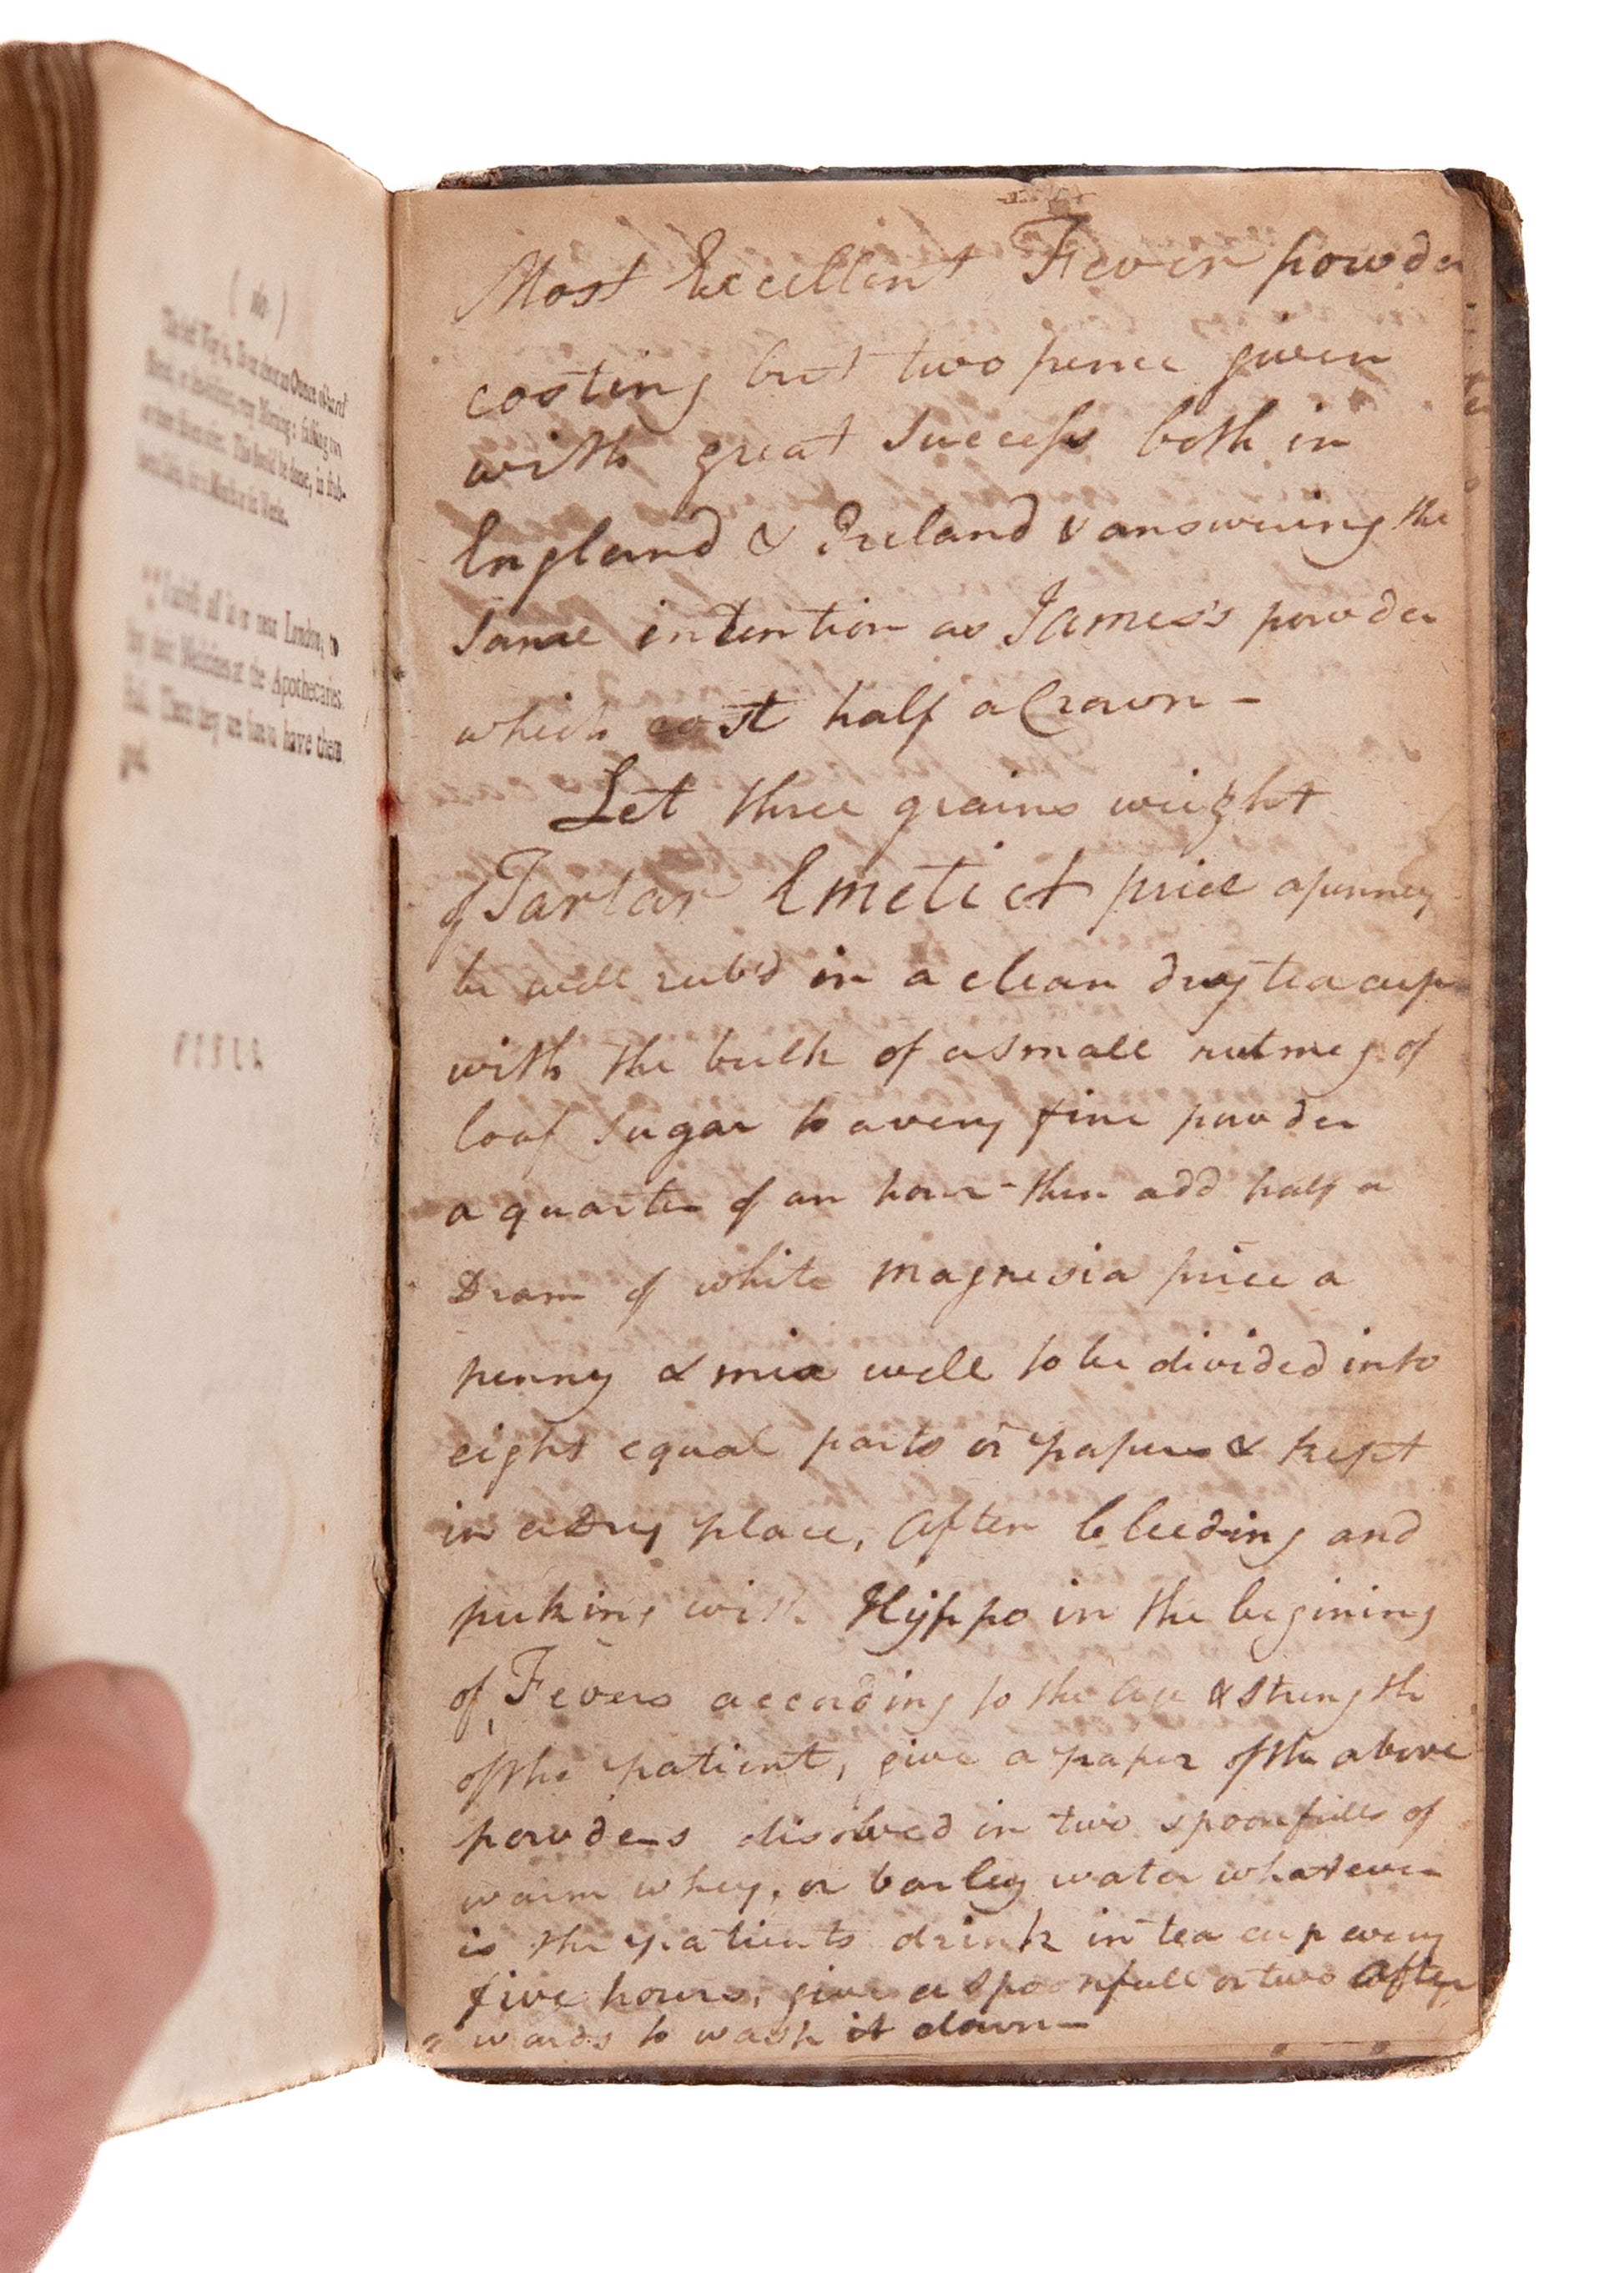 ( 
The best Way is, To
or two
I advise all in or near London, to
buy their Medicines at the Apothecaries
Hall. There they are sure to have them
good.
FINIS
Most Excellent Fever powder
costing but two pence given
with great Success both in
England & Ireland & answering the
Same intention as James's powder
which cost half a Crown -
Let three grains weight
of Tartar Emetick price a penney
be well rub'd in a clean dry tea cup
with the bulk of a small nutmeg of
loaf Sugar to a very fine powder
a quarter of an hour - then add half a
Dram of white magnesia price a
penny & mix well to be divided into
eight equal parts or papers & kept
in a Dry place, After bleeding and
puking with Hyppo in the begining
of Fevers according to the age & strength
of the patient, give a paper of the above
powders disolved in two spoonfulls of
warm whey, or barley water whatever
is the patients drink in tea cup every
five hours, give a spoonfull or two After
wards to wash it down -